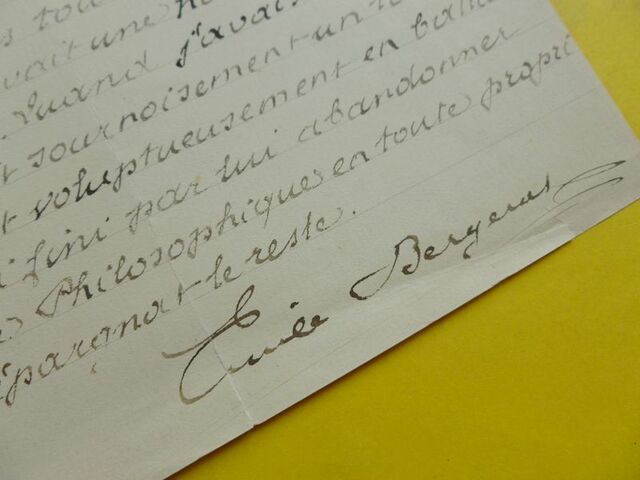 s tou
vait une
. Quand j'avais
t sournoisement un
t voluptueusement en
i fini par lui abandonner
Philosophique en toute propri
épargnat le reste.
Emile Bergerat